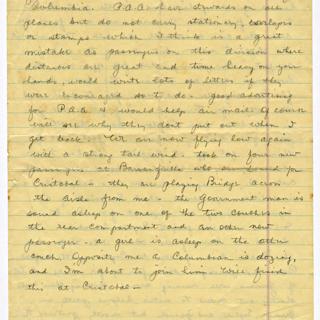 Columbia. P.A.A. have stewards on all
planes but do not carry stationery, envelopes
or stamps which I think is a great
mistake as passengers on this division where
distances are great and time heavy on your
hands, would write lots of letters if they
were encouraged so to do. good advertising
for P.A.A & would help air mail. Of course
will see why they dont put out when I
get back. We are now flying low again
with a strong tail wind. took on four new
passengers at Barranquilla who are bound for
Cristobal - they are playing Bridge across
the aisle from me - the Government man is
sound asleep on one of the two couches in
the rear compartment and an other new
passenger - a girl - is asleep on the other
couch. Opposite me a Columbian is dozing,
and I'm about to join him. Will finish
this at Cristobal -